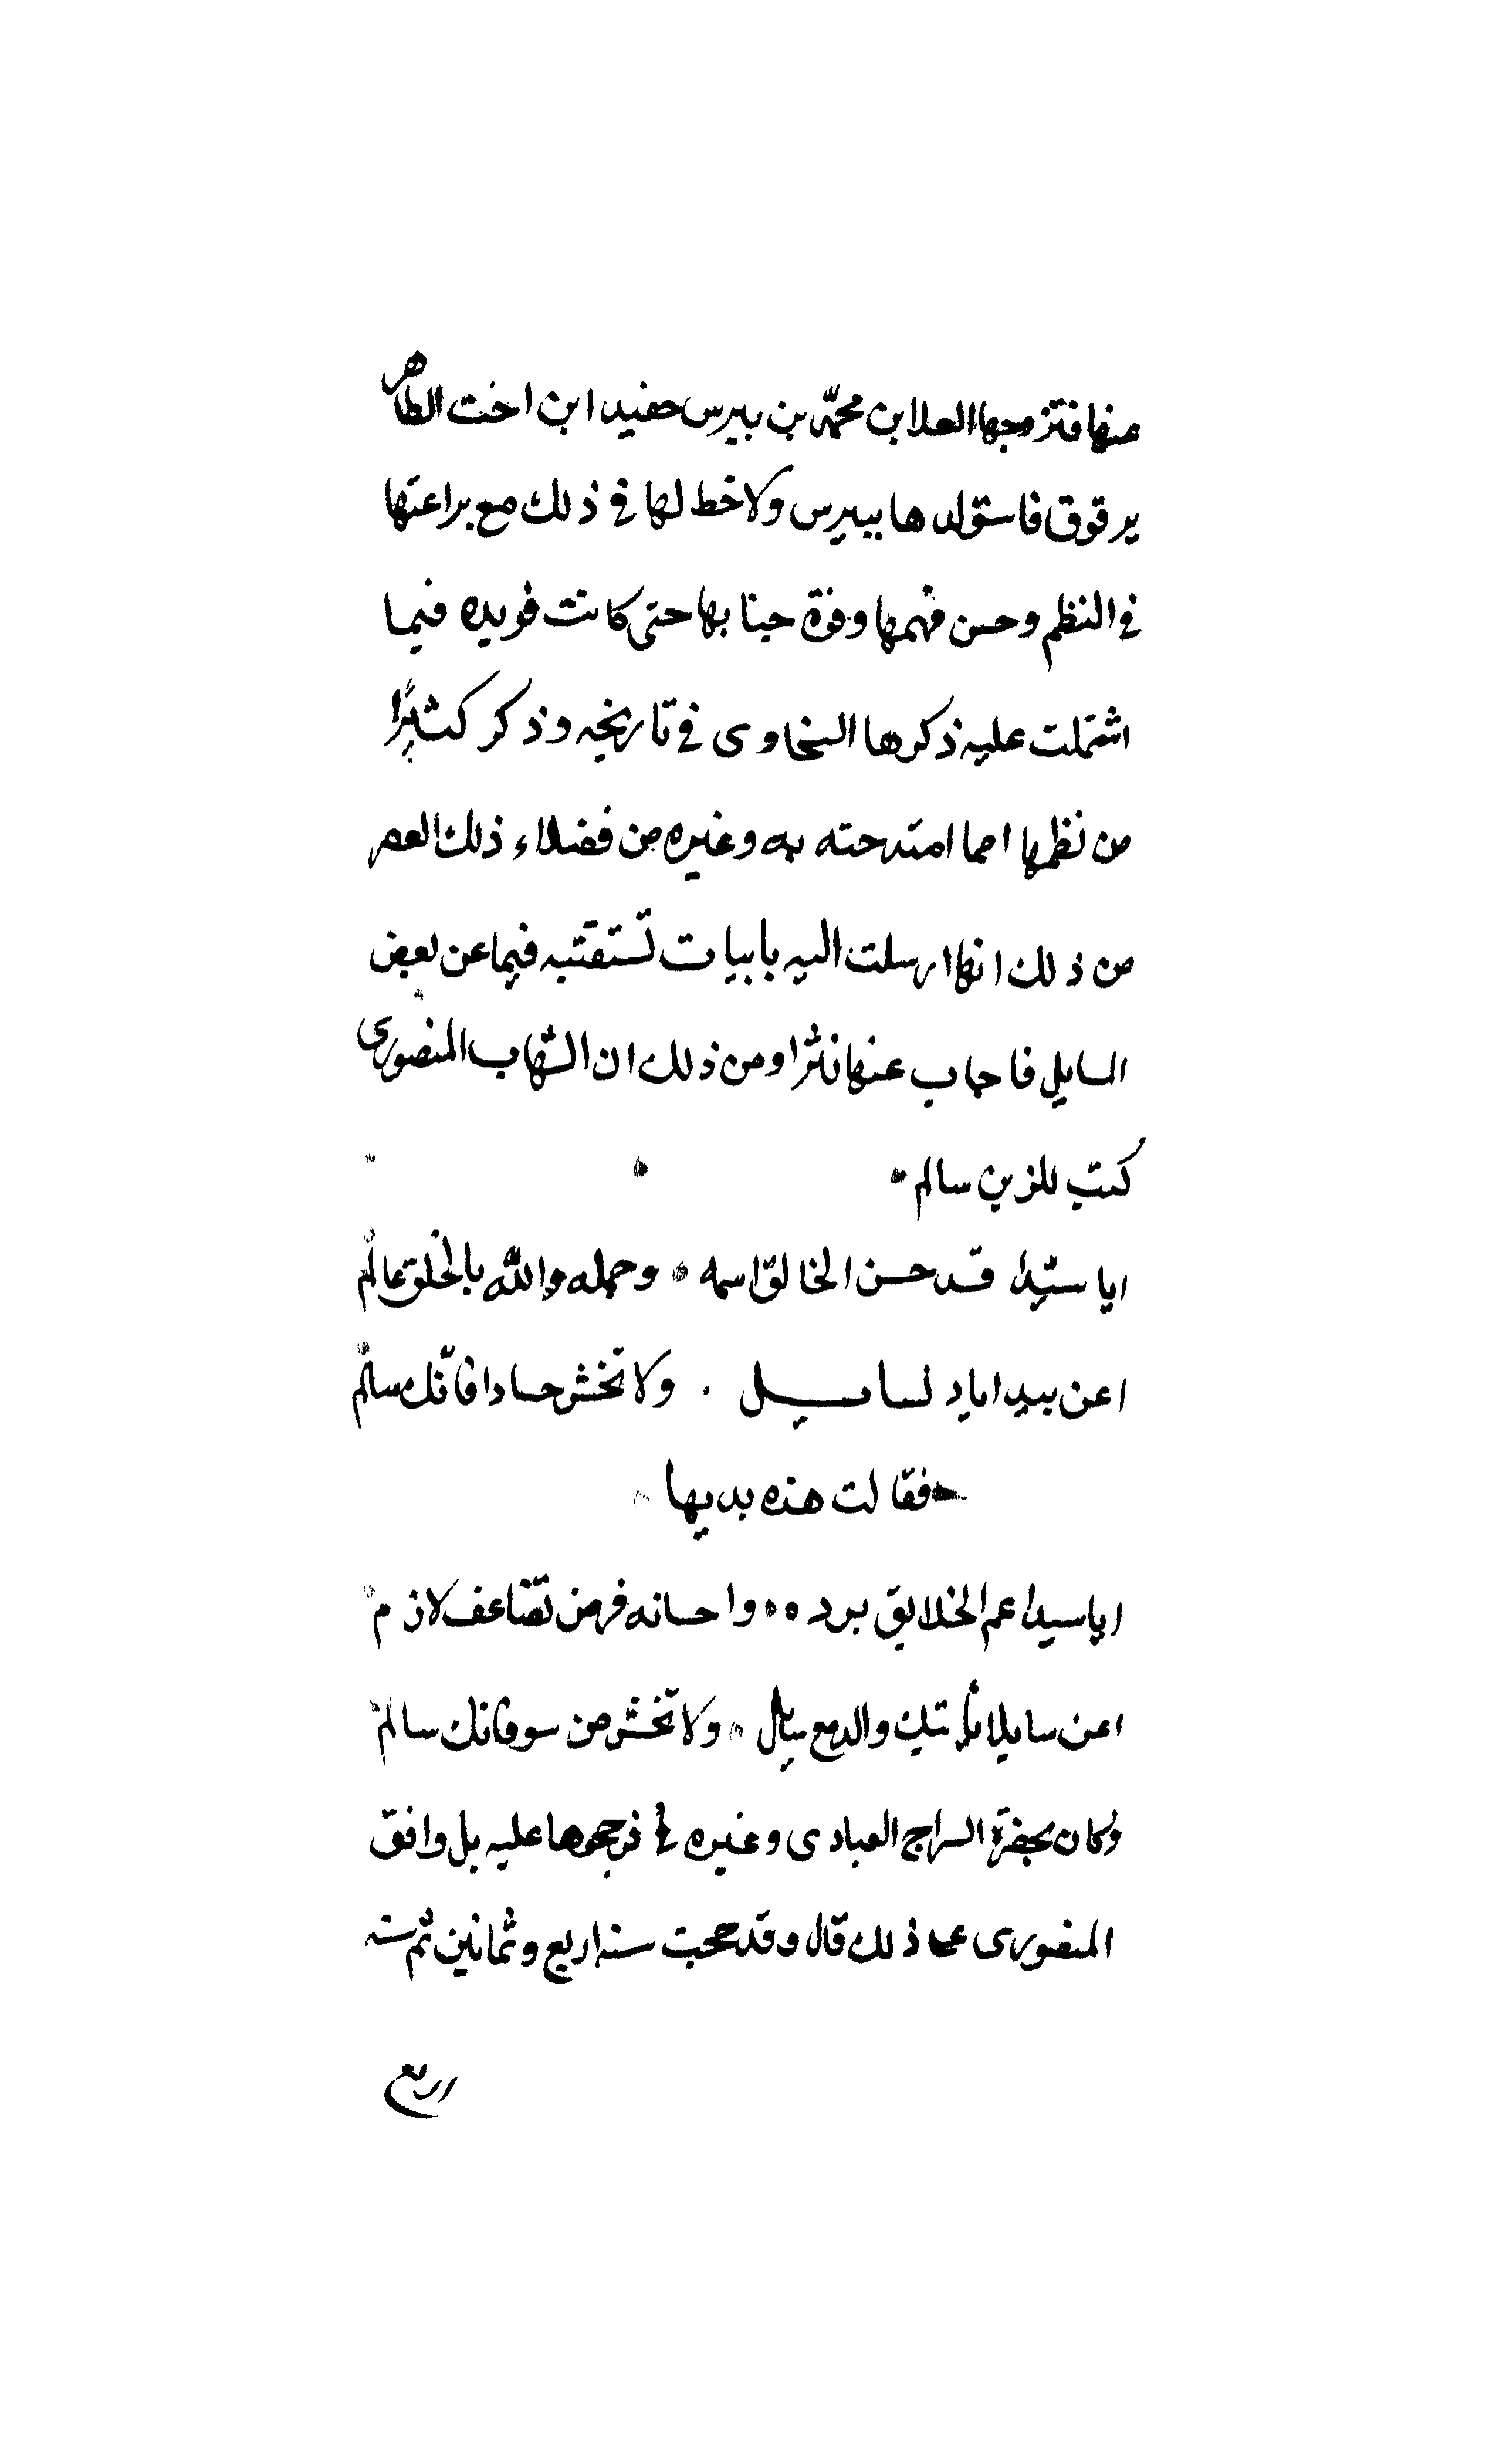 عنها فتزوجها العلا بن محمّد بن بيبرس حفيد ابن اخت الظاهر
برقوق فاستولدها بيبرس ولا خط لها في ذلك مع براعتها
في النظم وحسن فهمها وقوة جنا بها حتى كانت فريده فيما
اشتملت عليه ذكرها السخاوى في تاريخه وذكر كثيرًا
من نظمها مما امتدحته به وغيره من فضلاء ذلك العصر
من ذلك انها ارسلت اليه بابيات تستفتيه فيها عن بعض
المسايل فاجاب عنها نثرا ومن ذلك ان الشهاب المنصورى
كتب للزين سالم
ايا سيّدا قد حسن الخالق اسمه وجمله والله بالخلق عالم
اعن بيد اياد لسايل ولا تخش حسادا فانّك سالم
فقالت هذه بديها
ايا سيدا عم الخلايق بره واحسانه فرض تضاعف لازم
اعن سايلا ياتيك والدمع سايل ولا تخش من سوء فانك سالم
وكان بحضرة السراج العبادى وغيره فرجحوها عليه بل وافق
المنصورى على ذلك قال وقد حجت سنة اربع وثمانين ثم سنه
اربع